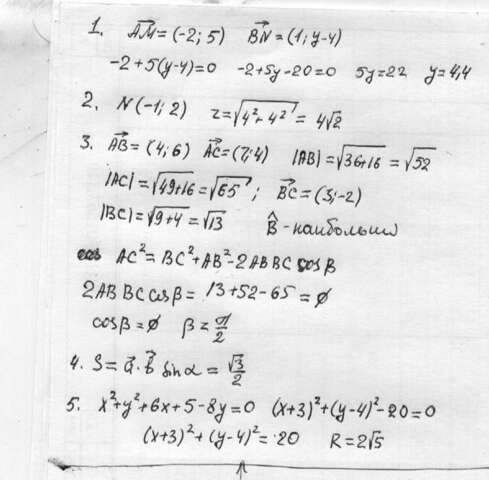 1. AM = (-2; 5) BN = (1; y-4)
-2+5(y-4)=0 -2+5y-20=0 5y=22 y=4,4
2. N(-1; 2) r=√(4²+4²) = 4√2
3. AB = (4; 6) AC = (7; 4) |AB| = √(36+16) = √52
|AC| = √(49+16) = √65 ; BC = (3; -2)
|BC| = √(9+4) = √13 B̂ - наибольший
AC² = BC² + AB² - 2AB BC cosβ
2AB BC cosβ = 13+52-65 = 0
cosβ = 0 β = π/2
4. S = a·b sinα = √3/2
5. x²+y²+6x+5-8y=0 (x+3)²+(y-4)²-20=0
(x+3)²+(y-4)²=20 R = 2√5